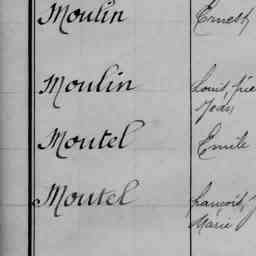 Moulin Ernest
Moulin Louis
Jean
Moutel Emile
Moutel François
Marie